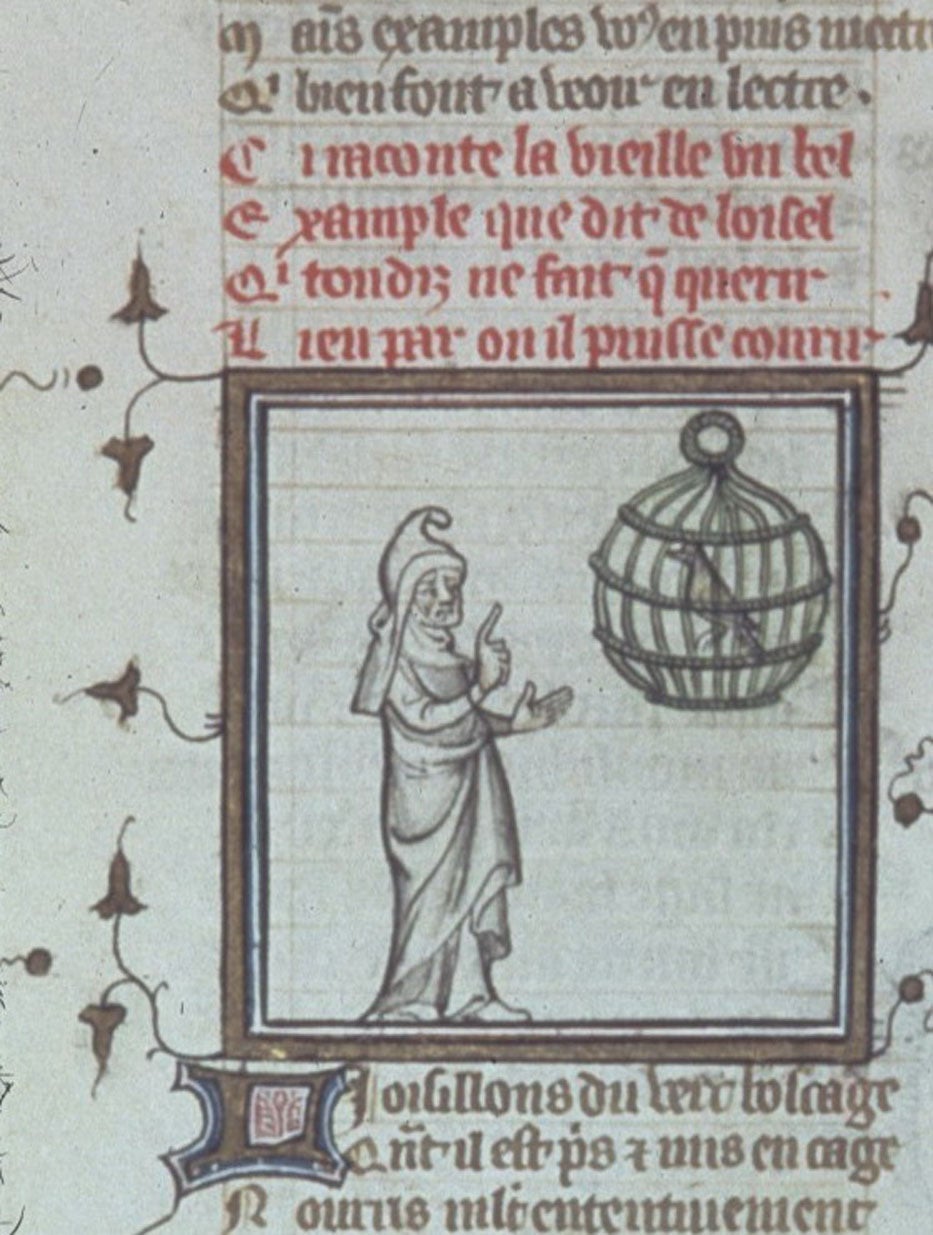 M ais examples vo9 en puis mectre
Q' bien font a veoir en lectre .
C i raconte la vieille un bel
E xample que dit de loisel
Q' toudiz ne fait q̄ querir
L ieu par ou il puisse courir
L Joisillons du vert boscage
Qn̄t il est p̄s ⁊ mis en cage
N ourris ml̄t ententivement